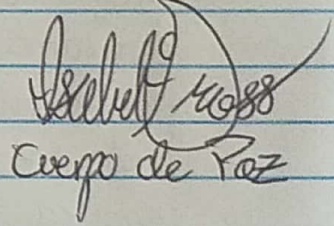 Isabel Cross
Cuerpo de Paz